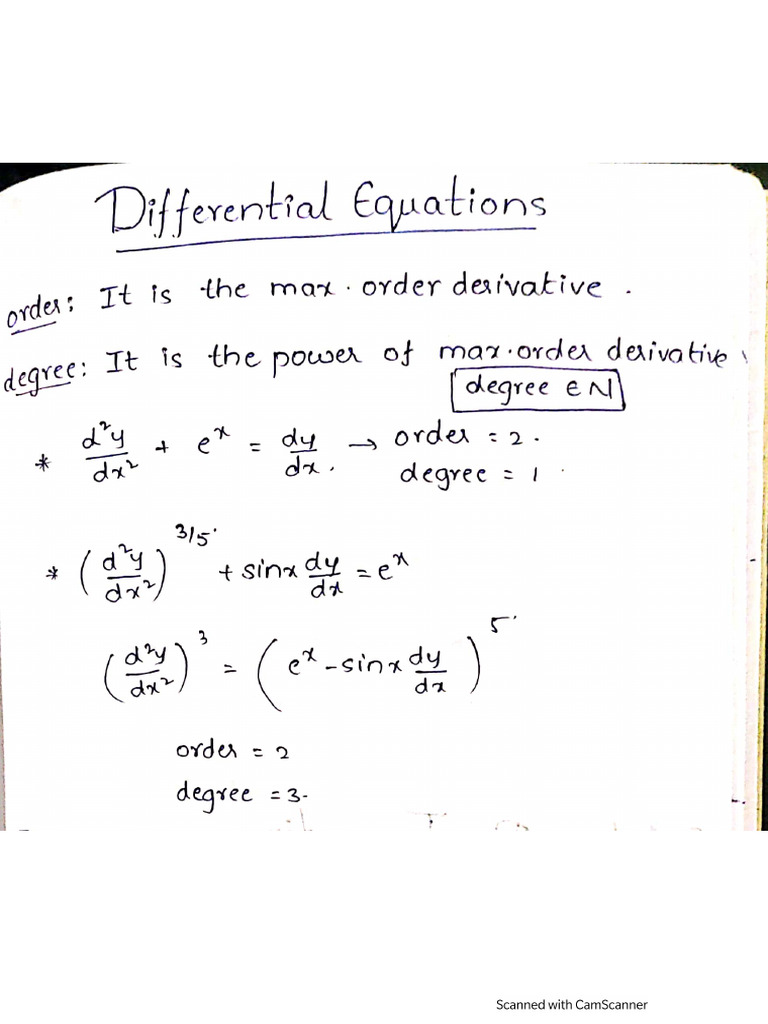 Differential Equations
order: It is the max. order derivative.
degree: It is the power of max. order derivative.
degree ∈ N
* d²y/dx² + eˣ = dy/dx. → order = 2.
degree = 1.
* (d²y/dx²)^(3/5) + sinx dy/dx = eˣ
(d²y/dx²)³ = (eˣ - sinx dy/dx)⁵
order = 2
degree = 3.
Scanned with CamScanner